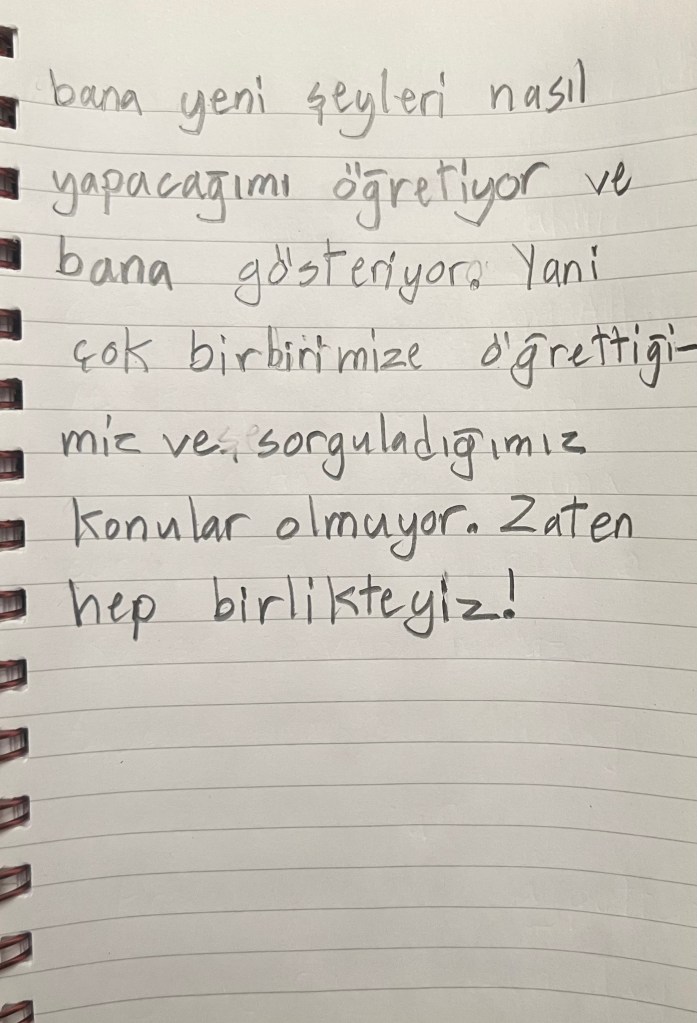 bana yeni şeyleri nasıl
yapacağımı öğretiyor ve
bana gösteriyor. Yani
çok birbirimize öğrettiği-
miz ve sorguladığımız
konular olmuyor. Zaten
hep birlikteyiz!